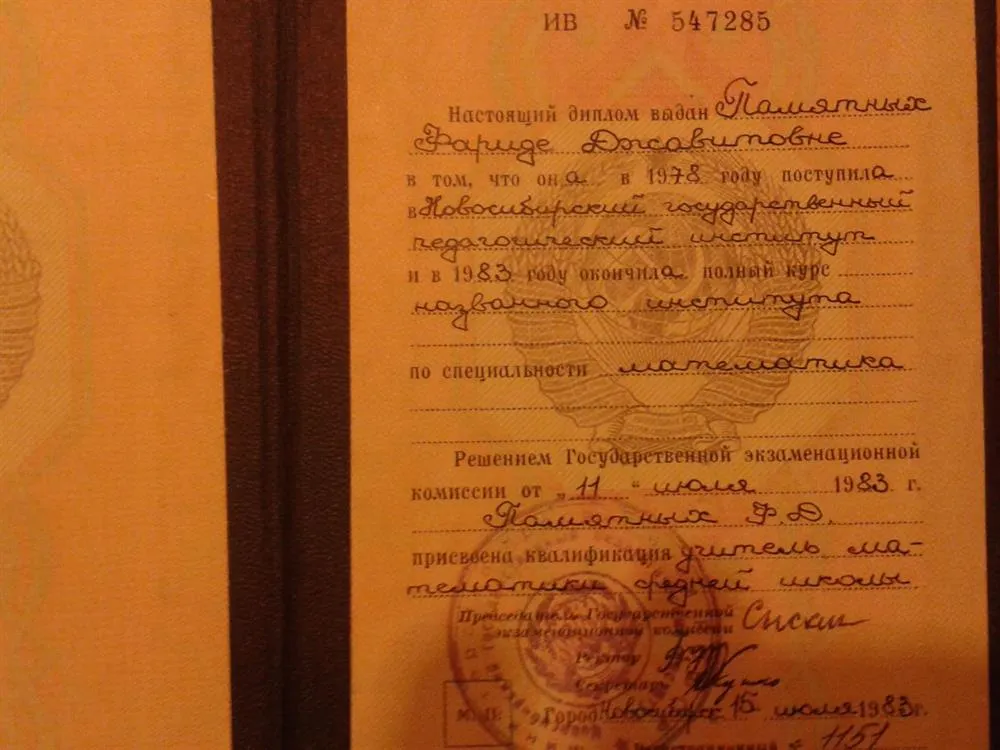 ИВ № 547285
Настоящий диплом выдан Памятных
Фариде Джавитовне
в том, что она в 1978 году поступила
в Новосибирский государственный
педагогический институт
и в 1983 году окончила полный курс
названного института
по специальности математика
Решением Государственной экзаменационной
комиссии от „11“ июля 1983 г.
Памятных Ф.Д.
присвоена квалификация учитель ма-
тематики средней школы
Председатель Государственной
экзаменационной комиссии
Ректор
Секретарь
М. П. Город Новосибирск 15 июля 1983 г.
№ 1151